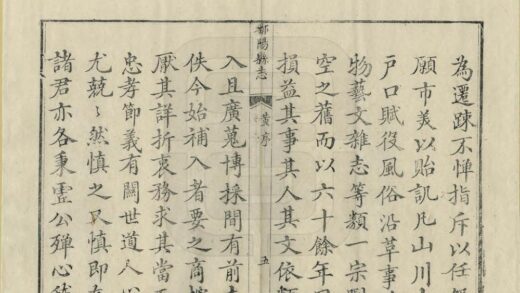 為遷踈不憚指斥以任
願市美以貽訊凡山川
戶口賦役風俗沿革事
物藝文雜志等類一宗
空之舊而以六十餘年
損益其事其人其文依
鄱陽縣志
黃序
五
入且廣蒐博採間有前
佚今始補入者要之商
厭其詳折衷務求其當
忠孝節義有關世道人
尤兢〻然慎之又慎即
諸君亦各秉虛公殫心